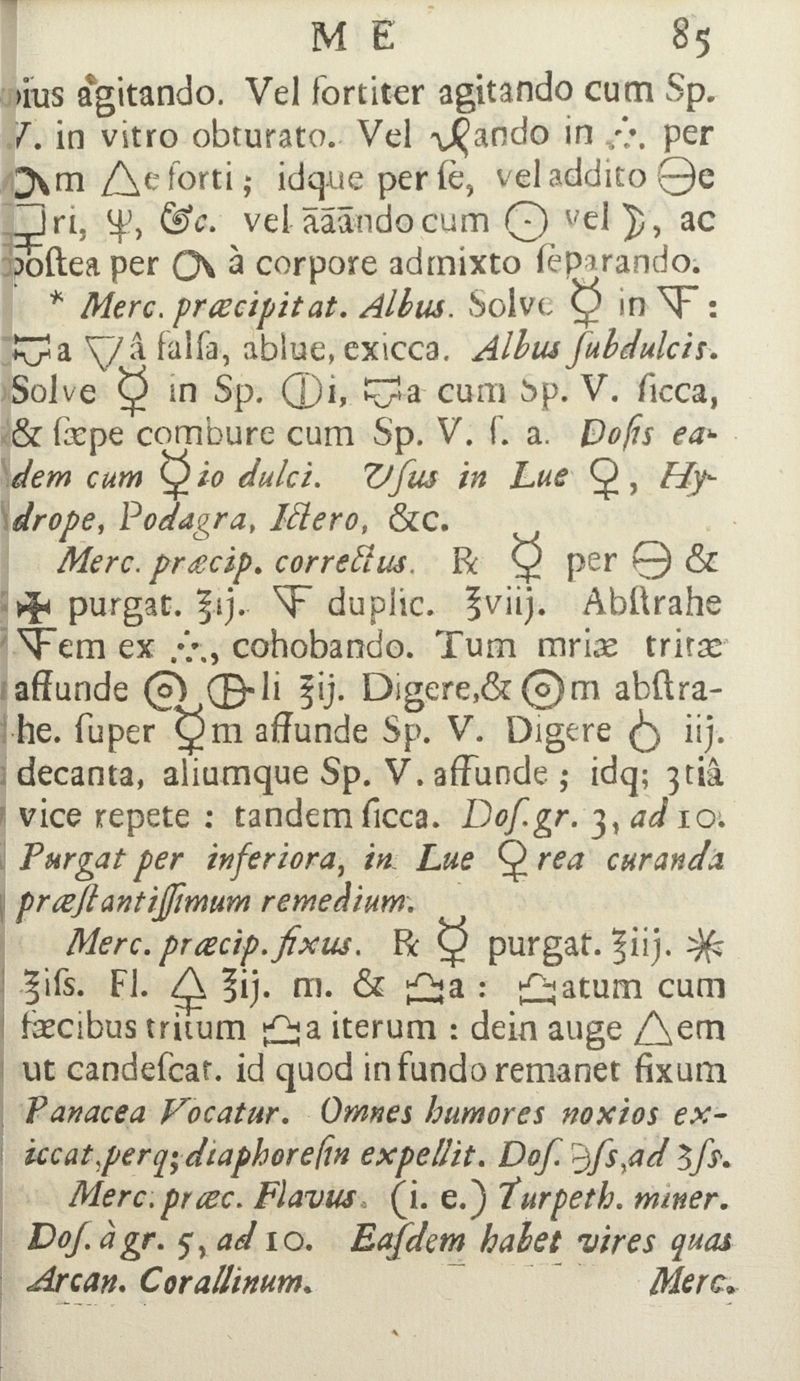 M E 85
ius agitando. Vel fortiter agitando cum Sp.
V. in vitro obturato. Vel ando in ∴. per
m △e forti; idque per ſe, vel addito 🜔e
ri, 🜍, &c. vel āāāndo cum ☉ vel ☽, ac
poſtea per à corpore admixto ſeparando.
* Merc. præcipitat. Albus. Solve ☿ in 🜅 :
a ▽â falſa, ablue, exicca. Albus ſubdulcis.
Solve ☿ in Sp. 🜕i, a cum Sp. V. ſicca,
& ſæpe combure cum Sp. V. ſ. a. Doſis ea-
dem cum ☿io dulci. Uſus in Lue ♀, Hy-
drope, Podagra, Ictero, &c.
Merc. præcip. correctus. ℞ ☿ per 🜔 &
🜊 purgat. ℥ij. 🜅 duplic. ℥viij. Abſtrahe
🜅em ex ∴., cohobando. Tum mriæ tritæ
affunde li ℥ij. Digere, & m abſtra-
he. ſuper ☿m affunde Sp. V. Digere iij.
decanta, aliumque Sp. V. affunde ; idq; 3tiâ
vice repete : tandem ſicca. Doſ. gr. 3, ad 10.
Purgat per inferiora, in Lue ♀rea curanda
præſtantiſſimum remedium.
Merc. præcip. fixus. ℞ ☿ purgat. ℥iij. 🜹
℥iſs. Fl. 🜍 ℥ij. m. & ♎a : ♎atum cum
fæcibus tritum ♎a iterum : dein auge △em
ut candeſcat. id quod in fundo remanet fixum
Panacea Vocatur. Omnes humores noxios ex-
iccat, perq; diaphoreſin expellit. Doſ. ℈ſs, ad ʒſs.
Merc. præc. Flavus. (i. e.) Turpeth. miner.
Doſ. à gr. 5, ad 10. Eaſdem habet vires quas
Arcan. Corallinum. Merc.